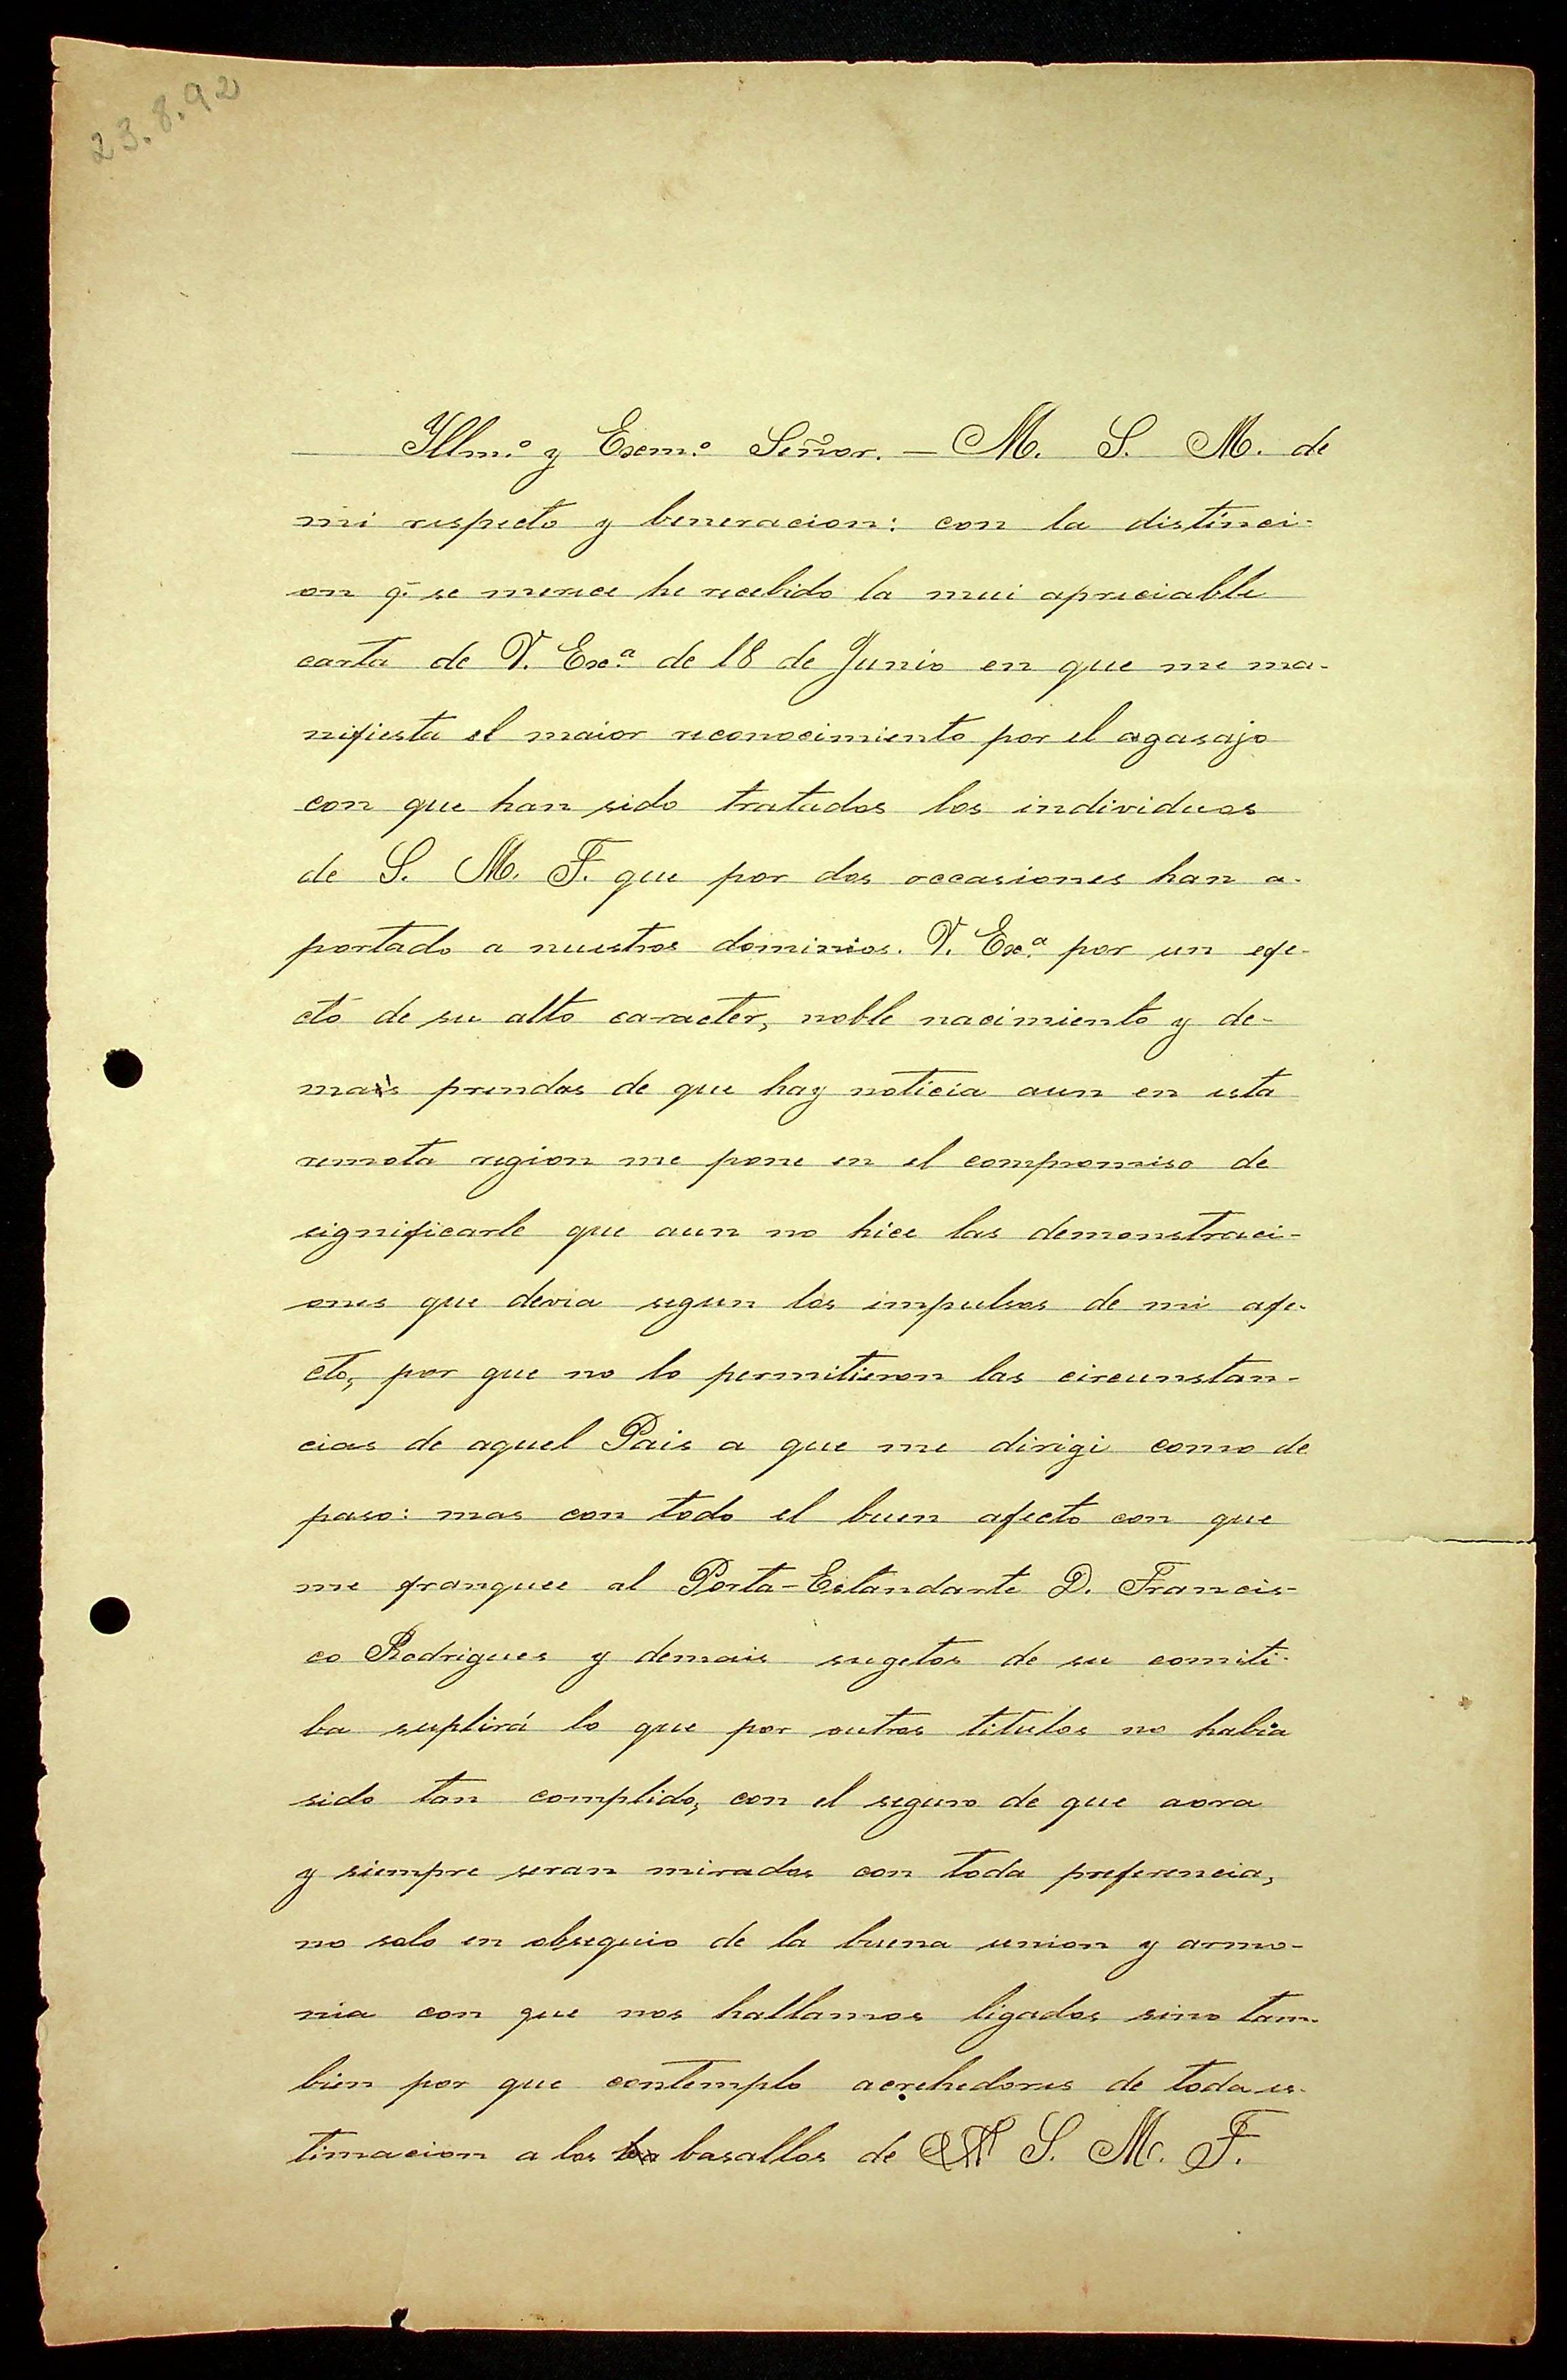 23.8.92
Yllm.º y Exem.º Señor. — M. S. M. de
mi respecto y beneracion: con la distinci-
on q. se merece he recebido la mui apreciable
carta de V. Ex.ª de 18 de Junio en que me ma-
nifiesta el maior reconocimiento por el agasajo
con que han sido tratados los individuos
de S. M. F. que por dos occasiones han a-
portado a nuestros dominios. V. Ex.ª por un efe-
cto de su alto caracter, noble nacimiento y de-
mais prendas de que hay noticia aun en esta
remota region me pone en el compromiso de
significarle que aun no hice las demonstraci-
ones que devia segun los impulsos de mi afe-
cto, por que no lo permitieron las circunstan-
cias de aquel Pais a que me dirigi como de
paso: mas con todo el buen afecto con que
me franquee al Porta-Estandarte D. Francis-
co Rodrigues y demais sugetos de su comiti-
ba suplirá lo que por outros titulos no habia
sido tan complido, con el seguro de que aora
y siempre seran mirados con toda preferencia,
no solo en obsequio de la buena union y armo-
nia con que nos hallamos ligados sino tam-
bien por que contemplo acrehedores de toda es-
timacion a los basallos de S. M. F.